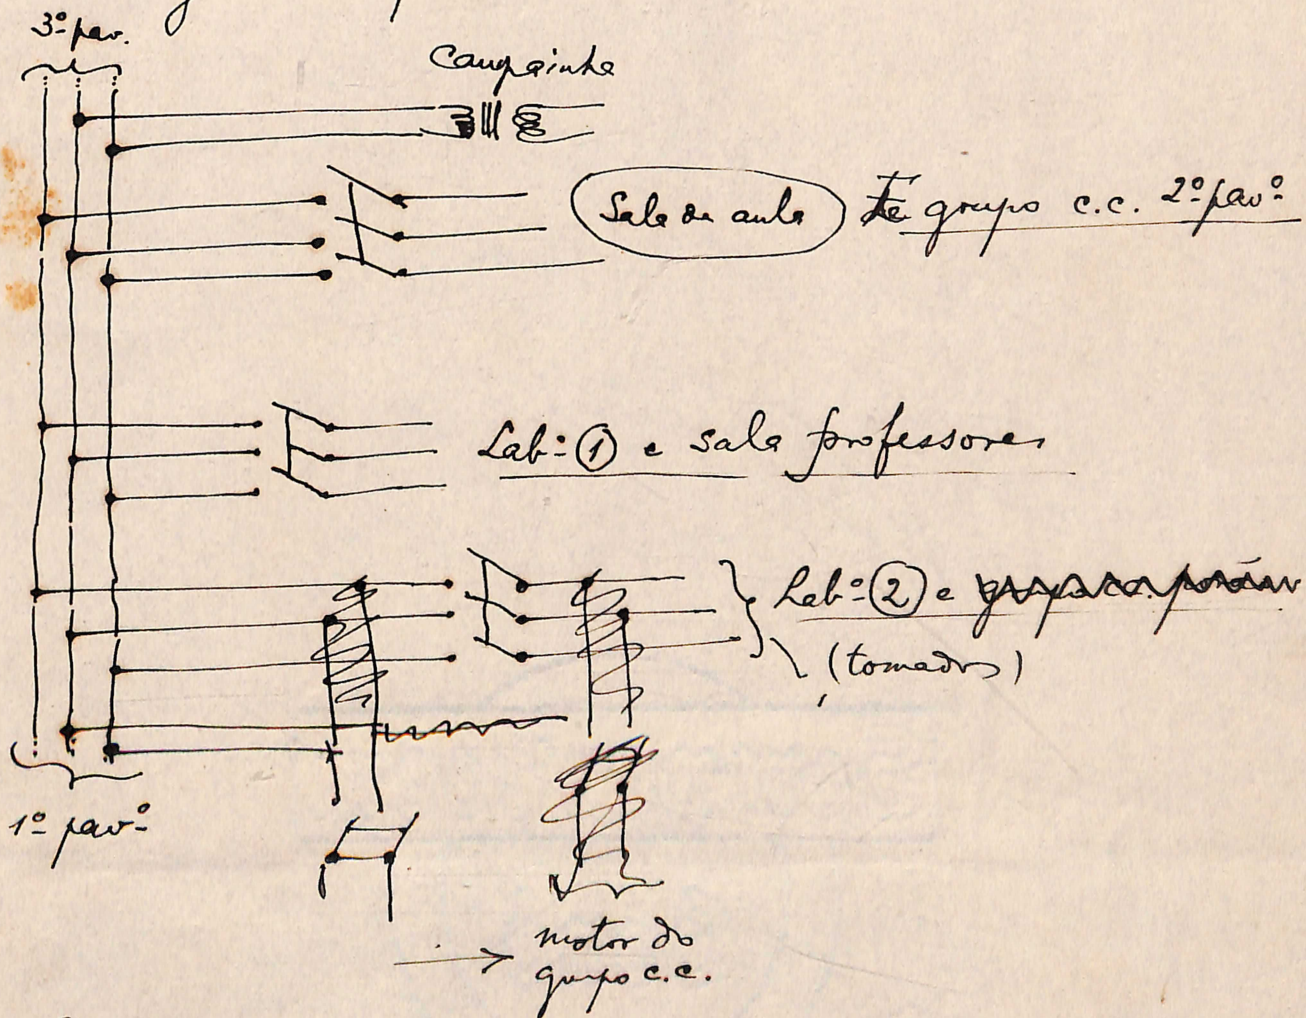 3º pav.
Campainha
Sala de aula grupo c.c. 2º pavº
Labº 1 e sala professores
Labº 2 e
(tomadas)
1º pavº
motor do
grupo c.c.